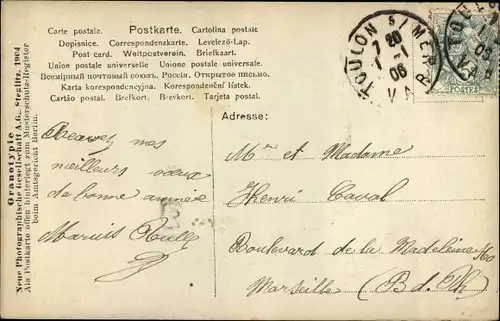 Carte postale. Postkarte. Cartolina postale
Dopisnice. Correspondenzkarte. Levelező-Lap.
Post card. Weltpostverein. Briefkaart.
Union postale universelle. Unione postale universale.
Всемірный почтовый союзъ. Россія. Открытое письмо.
Karta korespondencyjna. Korespondenční lístek.
Cartão postal. Brefkort. Brevkort. Tarjeta postal.
TOULON S/MER
1 - 1
06
VAR
POSTES
Oranotypie
Neue Photographische Gesellschaft A.G., Steglitz. 1904
Als Postkarte offen hinterlegt zum Musterschutz-Register
beim Amtsgericht Berlin.
Adresse:
Recevez mes
meilleurs vœux
de bonne année
Marius
Mr et Madame
Henri Caval
Boulevard de la Madeleine
Marseille (B d. Rh)